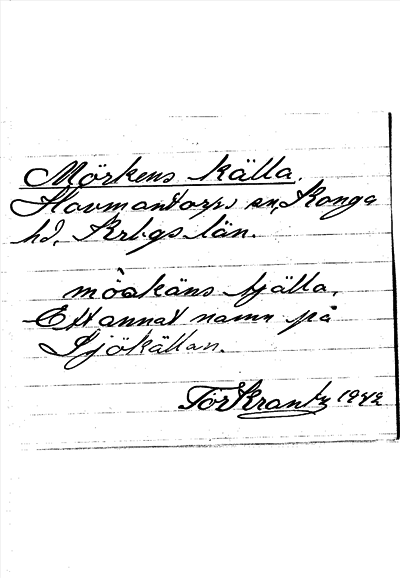 Mörkens källa.
Hovmantorps sn, Konga
hd, Krbgs län.
mö̀rkäns tjälla.
Ett annat namn på
Sjökällan.
Tör Krantz 1942